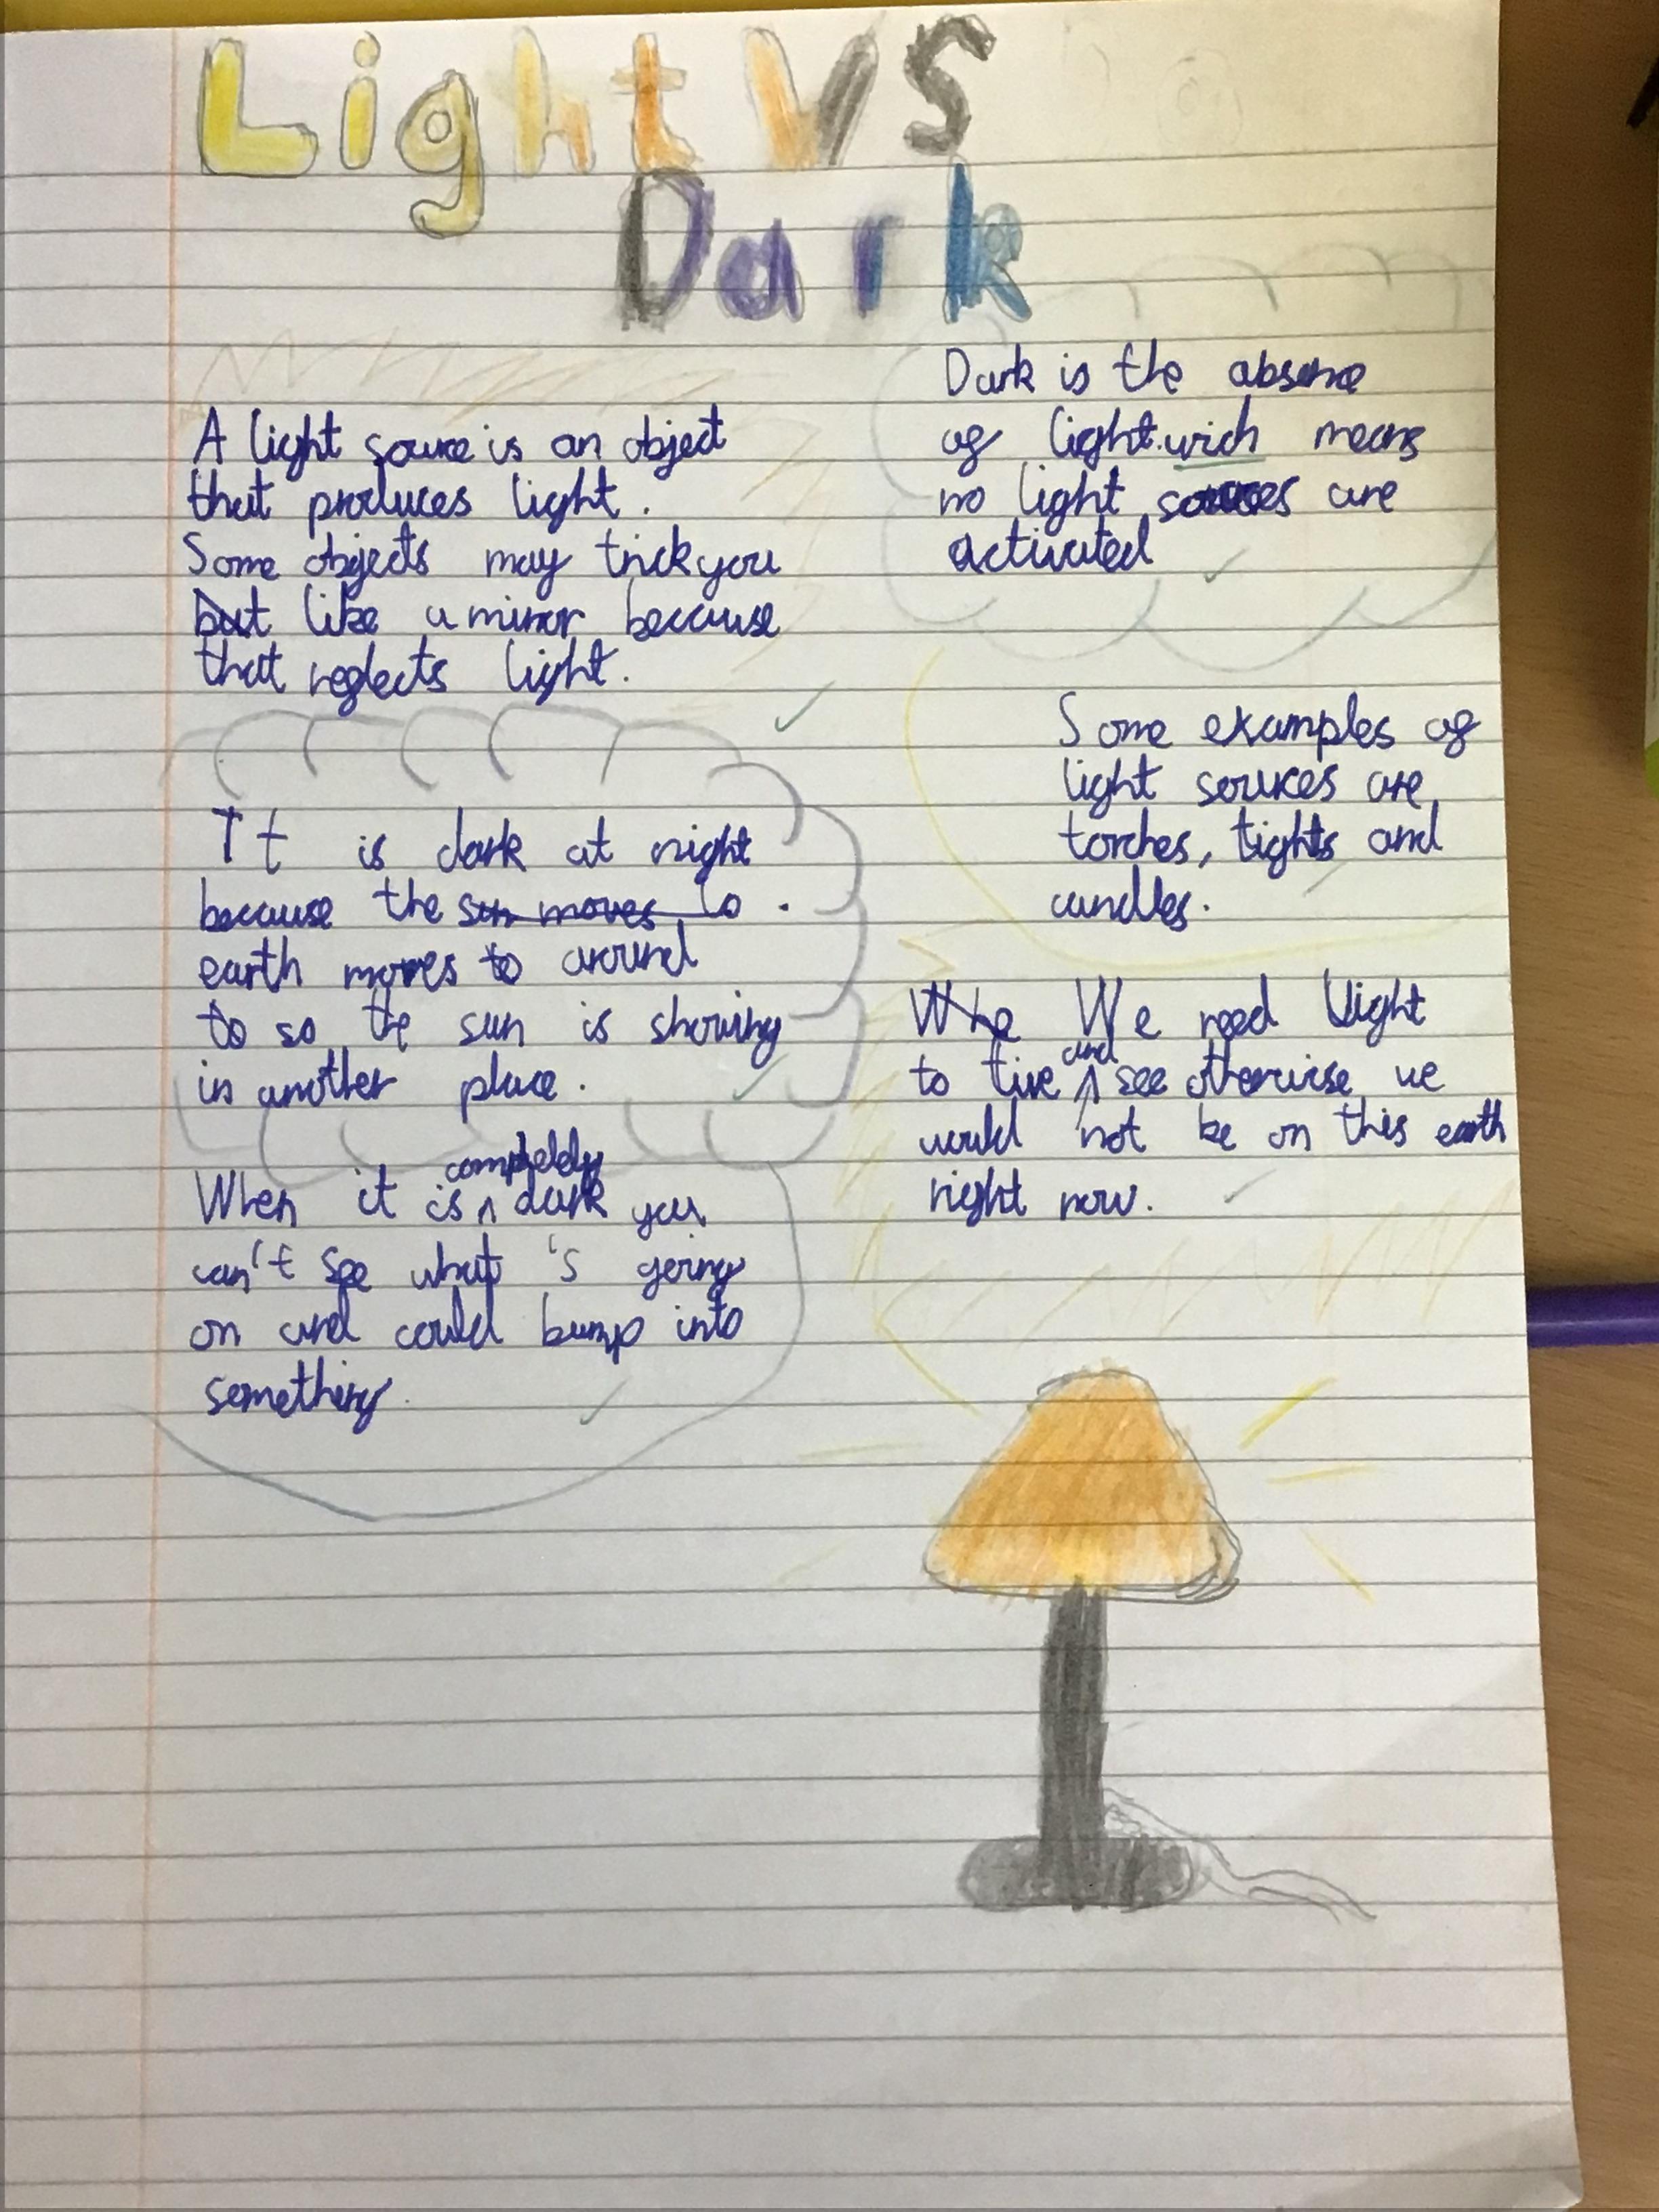 Light VS
Dark
A light source is an object
that produces light.
Some objects may trick you
but like a mirror because
that reglects light.
It is dark at night
because the sun moves to.
earth moves to around
to so the sun is showing
in another place.
When it is completely dark you
can't see what 's going
on and could bump into
something.
Dark is the absence
of light.wich means
no light sources are
activated
Some examples of
light sources are
torches, lights and
candles.
We need light
to live and see otherwise we
would not be on this earth
right now.